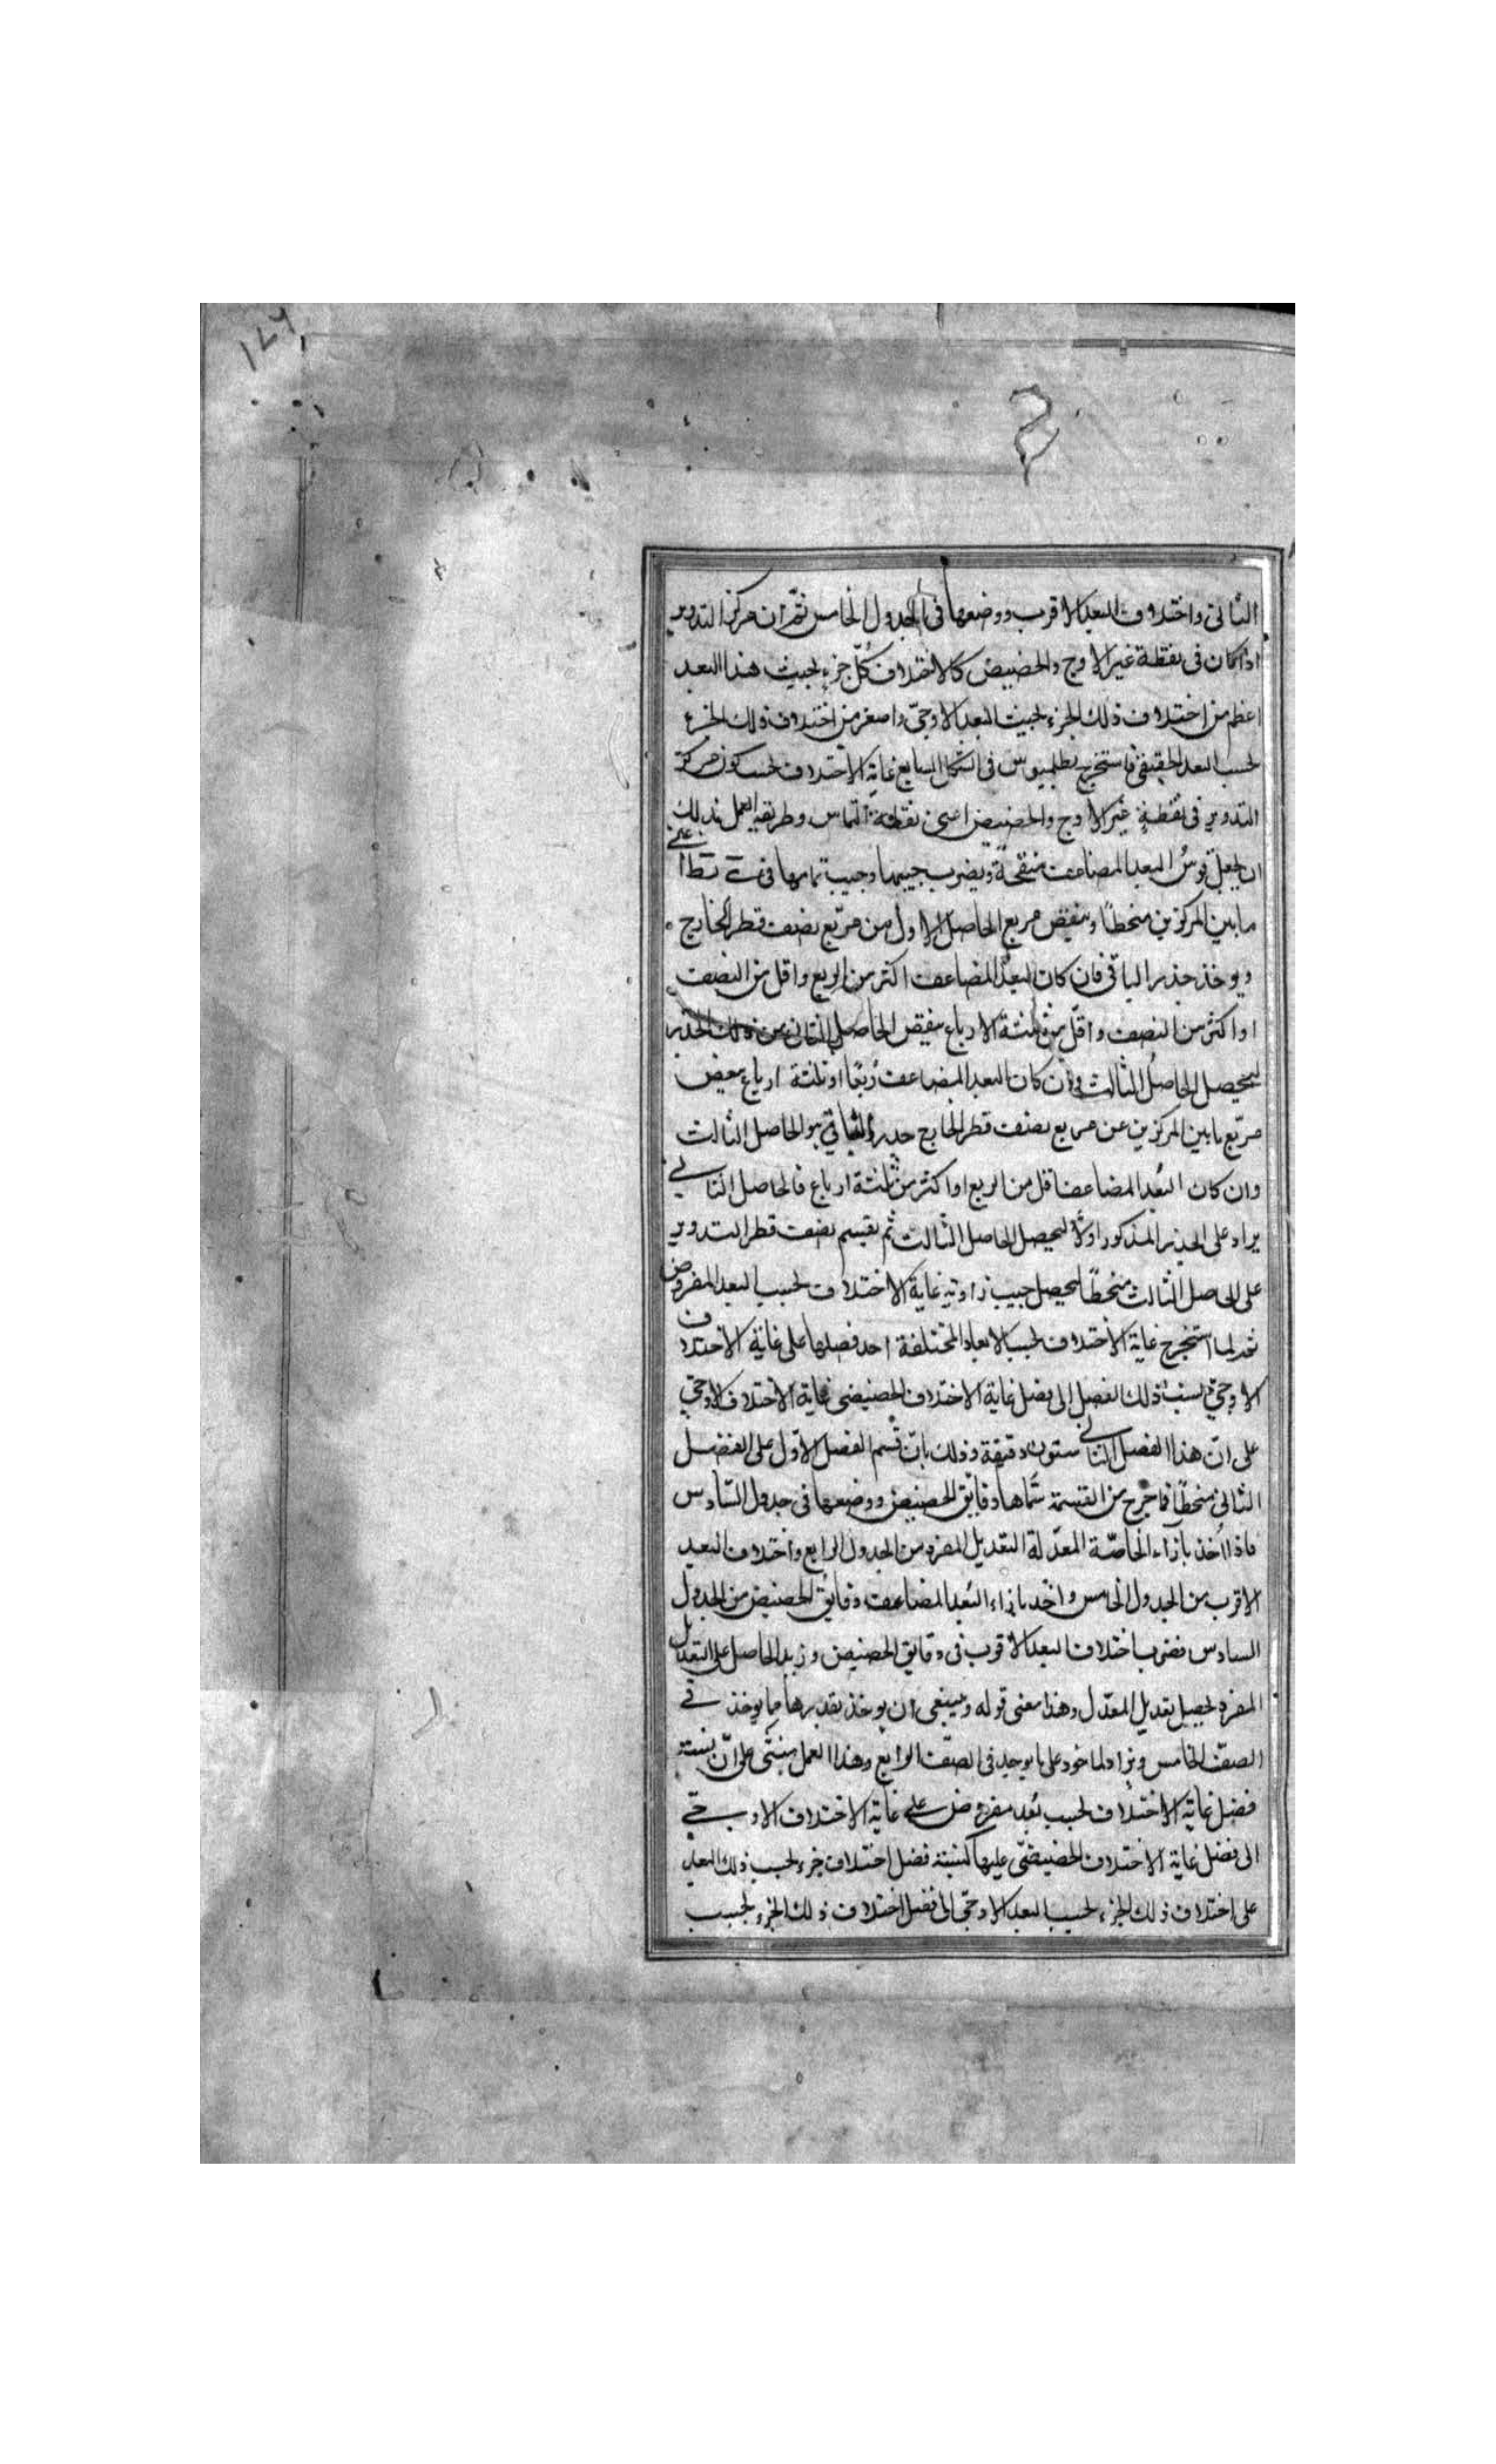 ١٤٦
الثانى واختلاف البعد الاقرب ووضعها فى الجدول الخامس ثم ان مركز التدوير
اذا كان فى نقطة غير الاوج والحضيض كان اختلاف كل جزء بحسب هذا البعد
اعظم من اختلاف ذلك الجزء بحسب البعد الاوجى واصغر من اختلاف ذلك الجزء
بحسب البعد الحضيضى فاستخرج بطلميوس فى الشكل السابع غاية الاختلاف بحسب كون مركز
التدوير فى نقطة غير الاوج والحضيض اعنى نقطة التماس وطريقة العمل بذلك
ان يجعل قوس البعد المضاعف منقحة ويضرب جيبها وجيب تمامها فى
ما بين المركزين منحطا وينقص مربع الحاصل الاول من مربع نصف قطر الخارج
ويوخذ جذر الباقى فان كان البعد المضاعف اكثر من الربع واقل من النصف
او اكثر من النصف واقل من ثلثة الارباع ينقص الحاصل الثانى من ذلك الجذر
ليحصل الحاصل الثالث وان كان البعد المضاعف ربعا او ثلثة ارباع ينقص
مربع ما بين المركزين من مربع نصف قطر الخارج جذر الباقى هو الحاصل الثالث
وان كان البعد المضاعف اقل من الربع او اكثر من ثلثة ارباع فالحاصل الثانى
يزاد على الجذر المذكور اولا ليحصل الحاصل الثالث ثم يقسم نصف قطر التدوير
على الحاصل الثالث منحطا ليحصل جيب زاوية غاية الاختلاف بحسب البعد المفروض
ثم لما استخرج غاية الاختلاف بحسب الابعاد المختلفة اخذ فضلها على غاية الاختلاف
الاوجى نسب ذلك الفضل الى فضل غاية الاختلاف الحضيضى غاية الاختلاف الاوجى
على ان هذا الفضل الثانى ستون دقيقة وذلك بان قسم الفضل الاول على الفضل
الثانى منحطا فما خرج من القسمة سماها دقايق الحضيض ووضعها فى جدول السادس
فاذا اخذ بازاء الخاصة المعدلة التعديل المفرد من الجدول الرابع واختلاف البعد
الاقرب من الجدول الخامس واخذ بازاء البعد المضاعف دقايق الحضيض من الجدول
السادس فضرب اختلاف البعد الاقرب فى دقايق الحضيض وزيد الحاصل على التعديل
المفرد يحصل تعديل المعدل وهذا معنى قوله وينبغى ان يوخذ بقدرها مما يوخذ فى
الصف الخامس ويزاد الماخوذ على ما يوجد فى الصف الرابع وهذا العمل مبنى على ان نسبة
فضل غاية الاختلاف بحسب بعد مفروض على غاية الاختلاف الاوجى
الى فضل غاية الاختلاف الحضيضى عليها كنسبة فضل اختلاف جزء بحسب ذلك البعد
على اختلاف ذلك الجزء بحسب البعد الاوجى الى فضل اختلاف ذلك الجزء بحسب